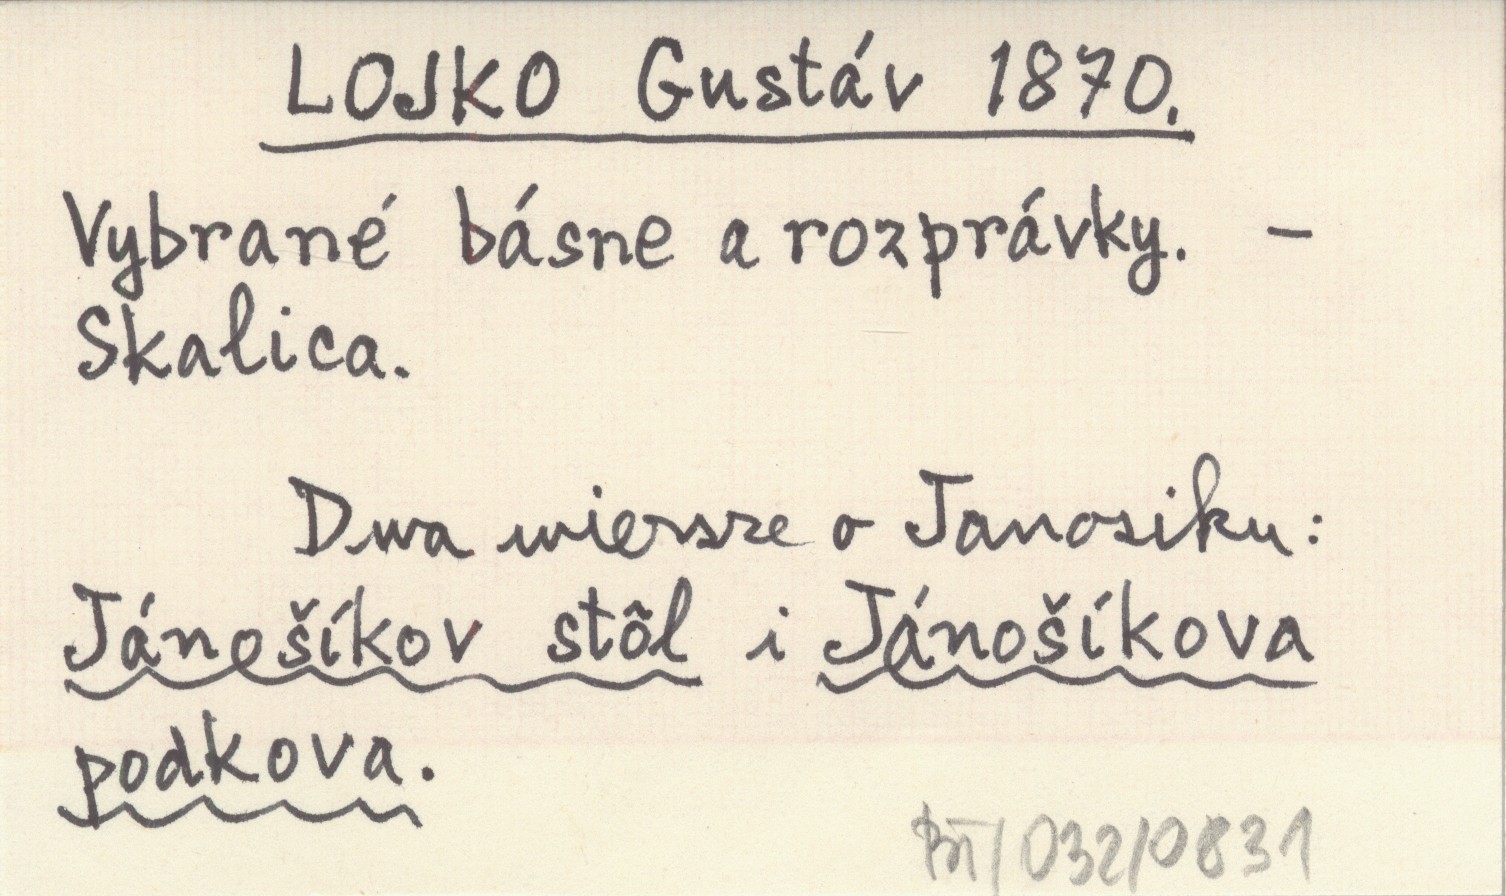 LOJKO Gustáv 1870.
Vybrané básne a rozprávky. –
Skalica.
Dwa wiersze o Janosiku:
Jánošíkov stôl i Jánošíkova
podkova.
/032/0831